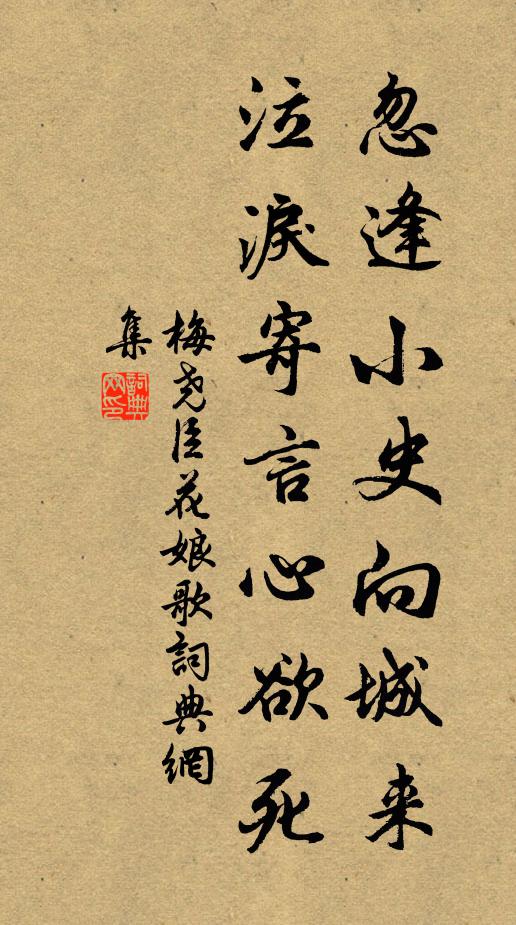 忽逢小史向城来
泣淚寄言心欲死
梅尧臣花娘歌詞典網
集
詞典網印